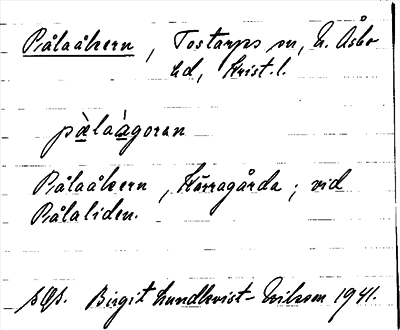 Pålaåkern, Tostarps sn, N. Åsbo
hd, Krist. l.
pàlaàgoran
Pålaåkern, Kärragårda; vid
Pålaliden.
sgs. Birgit Lundkvist-Wilson 1941.